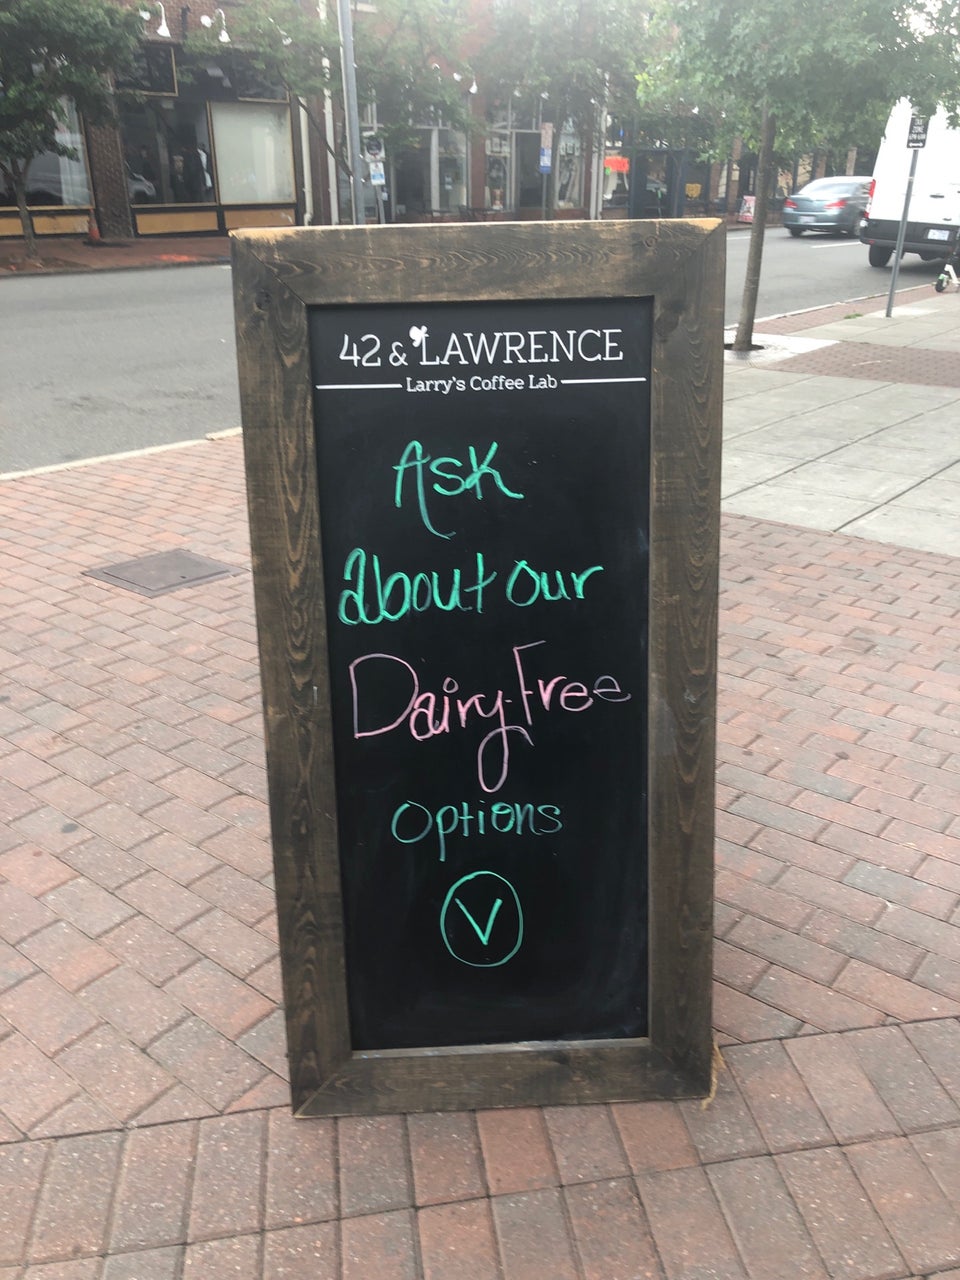 42 & LAWRENCE
Larry's Coffee Lab
Ask
about our
Dairy-Free
options
V